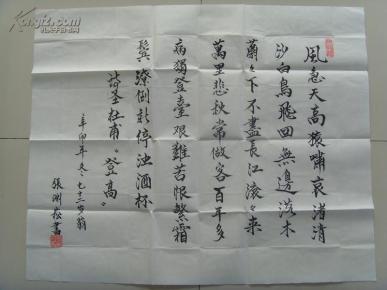 風急天高猿嘯哀渚清
沙白鳥飛回無邊落木
蕭〻下不盡長江滚〻来
萬里悲秋常做客百年多
病獨登臺艰難苦恨繁霜
鬓潦倒新停浊酒杯
詩圣杜甫〝登高〞
辛卯年冬七十三岁翁
張渊崧書